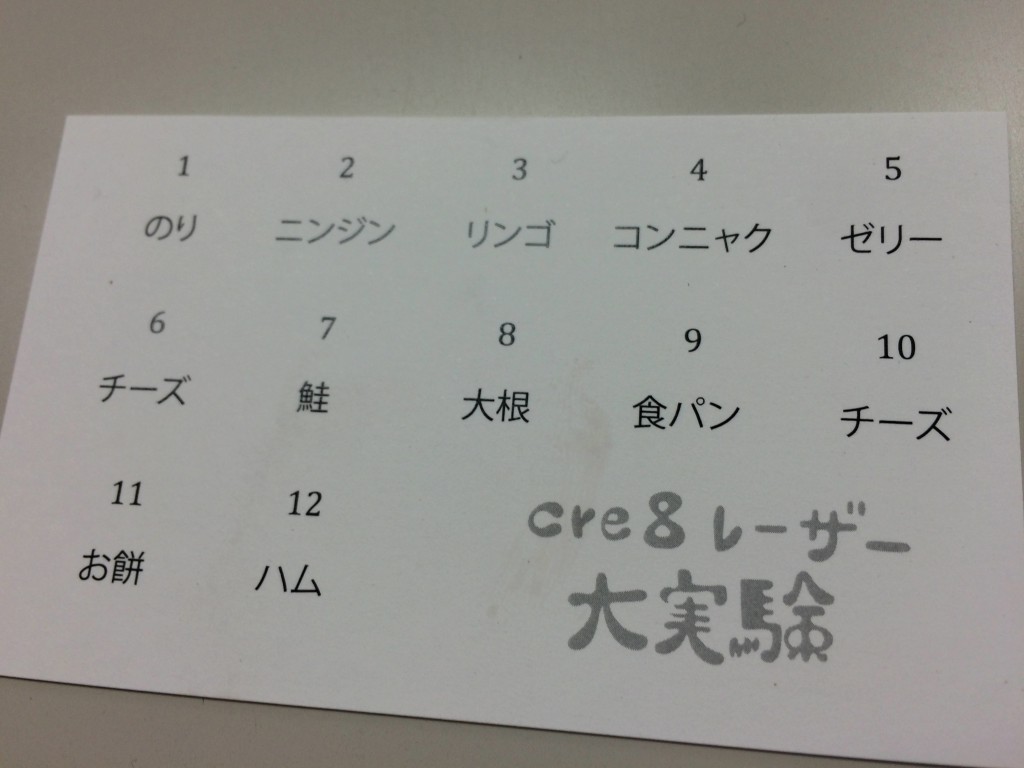 1 2 3 4 5
のり ニンジン リンゴ コンニャク ゼリー
6 7 8 9 10
チーズ 鮭 大根 食パン チーズ
11 12
お餅 ハム
cre8 レーザー
大実験